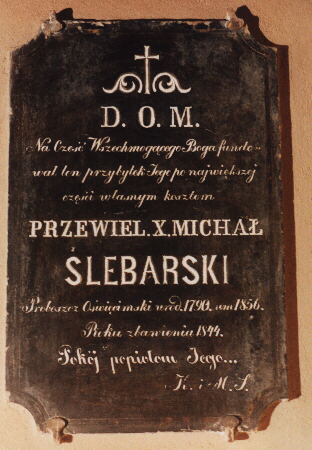 D. O. M.
Na Cześć Wszechmogącego Boga fundo-
wał ten przybytek Jego po największej
części własnym kosztem
PRZEWIEL. X. MICHAŁ
ŚLEBARSKI
Proboszcz Oswięcimski urod. 1790. um 1856.
Roku zbawienia 1844.
Pokój popiołom Jego...
K. i M. S.